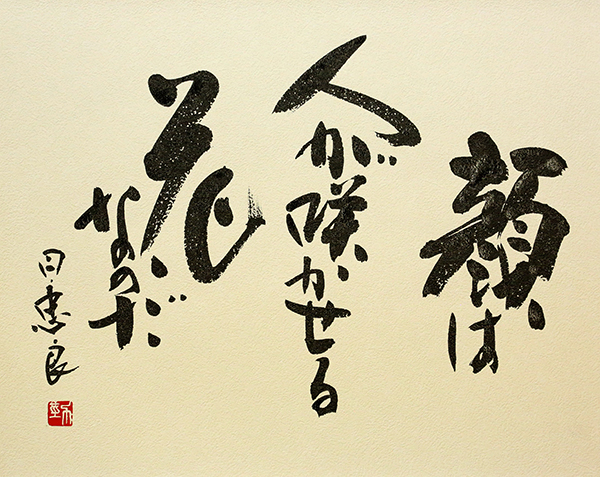 顔は
人が咲かせる
花
なのだ
日恵良